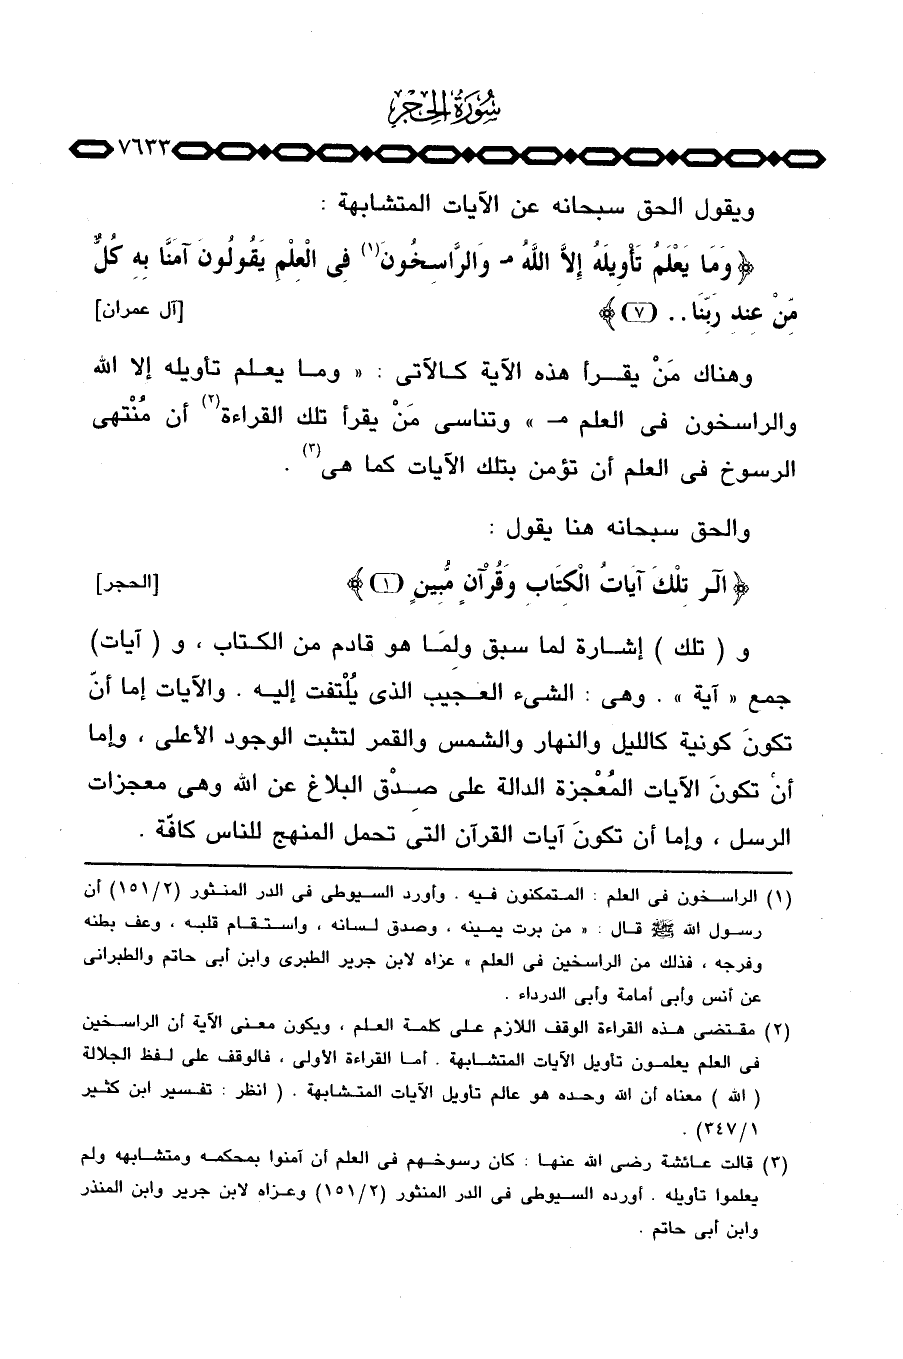 سُورَةُ الحِجْرِ
٧٦٣٣
ويقول الحق سبحانه عن الآيات المتشابهة :
﴿ وَمَا يَعْلَمُ تَأْوِيلَهُ إِلاَّ اللَّهُ مـ وَالرَّاسِخُونَ(١) فِى الْعِلْمِ يَقُولُونَ آمَنَّا بِهِ كُلٌّ
مِّنْ عِندِ رَبِّنَا .. (٧) ﴾ [آل عمران]
وهناك مَنْ يقرأ هذه الآية كالآتى : « وما يعلم تأويله إلا الله
والراسخون فى العلم مـ » وتناسى مَنْ يقرأ تلك القراءة(٢) أن مُنْتهى
الرسوخ فى العلم أن تؤمن بتلك الآيات كما هى(٣) .
والحق سبحانه هنا يقول :
﴿ الٓر تِلْكَ آيَاتُ الْكِتَابِ وَقُرْآنٍ مُّبِينٍ (١) ﴾ [الحجر]
و ( تلك ) إشارة لما سبق ولِمَا هو قادم من الكتاب ، و ( آيات)
جمع « آية » . وهى : الشىء العجيب الذى يُلْتفت إليه . والآيات إما أنْ
تكونَ كونية كالليل والنهار والشمس والقمر لتثبت الوجود الأعلى ، وإما
أنْ تكونَ الآيات المُعْجزة الدالة على صِدْق البلاغ عن الله وهى معجزات
الرسل ، وإما أن تكونَ آيات القرآن التى تحمل المنهج للناس كافّة .
(١) الراسخون فى العلم : المتمكنون فيه . وأورد السيوطى فى الدر المنثور (١٥١/٢) أن
رسول الله ﷺ قال : « من برت يمينه ، وصدق لسانه ، واستقام قلبه ، وعف بطنه
وفرجه ، فذلك من الراسخين فى العلم » عزاه لابن جرير الطبرى وابن أبى حاتم والطبرانى
عن أنس وأبى أمامة وأبى الدرداء .
(٢) مقتضى هذه القراءة الوقف اللازم على كلمة العلم ، ويكون معنى الآية أن الراسخين
فى العلم يعلمون تأويل الآيات المتشابهة . أما القراءة الأولى ، فالوقف على لفظ الجلالة
( الله ) معناه أن الله وحده هو عالم تأويل الآيات المتشابهة . ( انظر : تفسير ابن كثير
٣٤٧/١) .
(٣) قالت عائشة رضى الله عنها : كان رسوخهم فى العلم أن آمنوا بمحكمه ومتشابهه ولم
يعلموا تأويله . أورده السيوطى فى الدر المنثور (١٥١/٢) وعزاه لابن جرير وابن المنذر
وابن أبى حاتم .